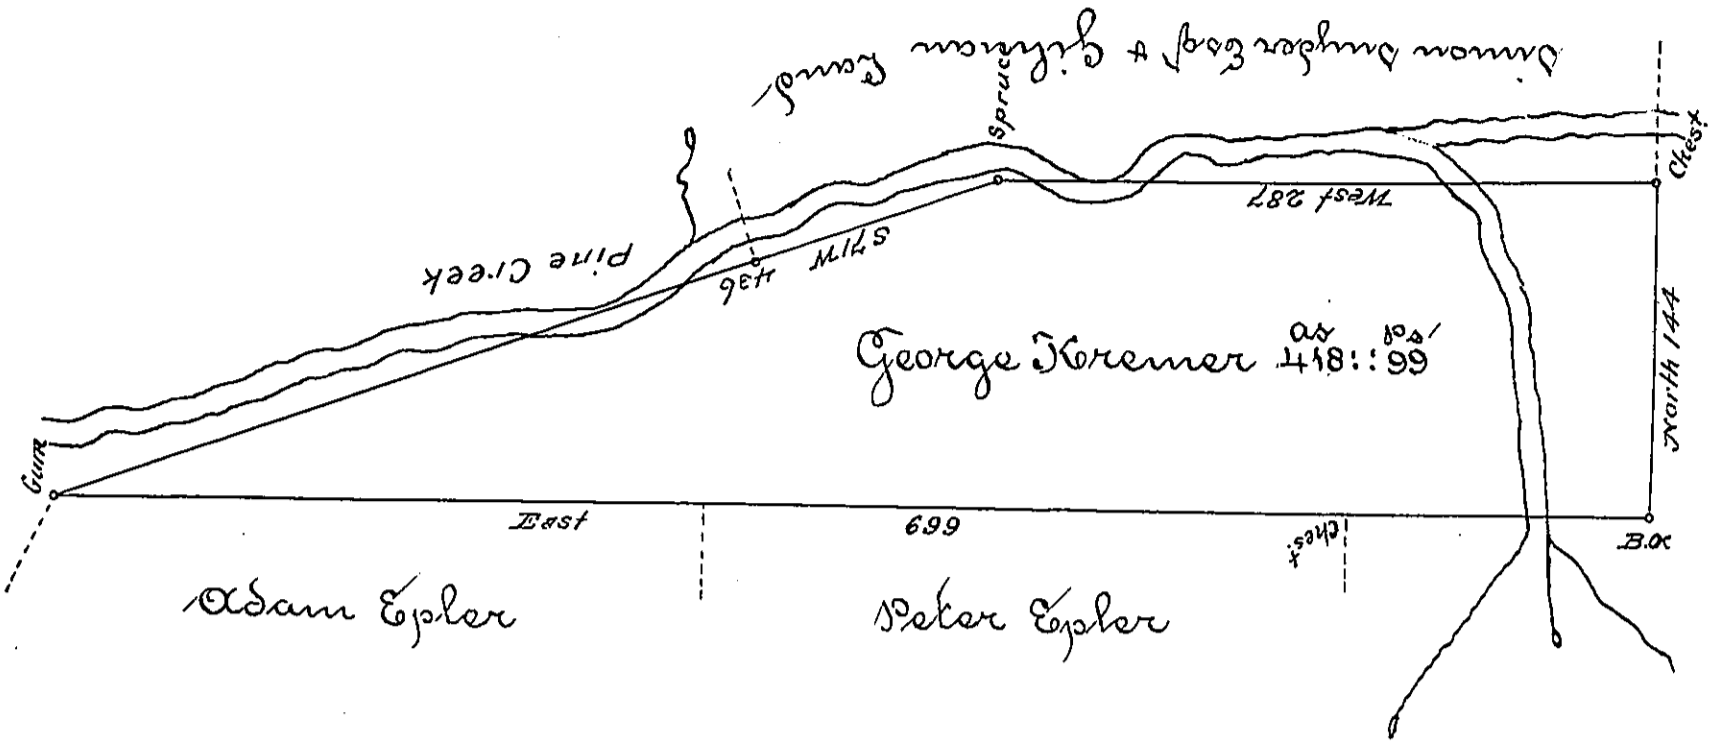 Simon Snyder Esqr & Gilman Land
Spruce
Chest
West 287
Pine Creek
S71W
436
George Kremer as ps
418::99
North 144
Gum
East
699
Chest
B.O
Adam Epler
Peter Epler